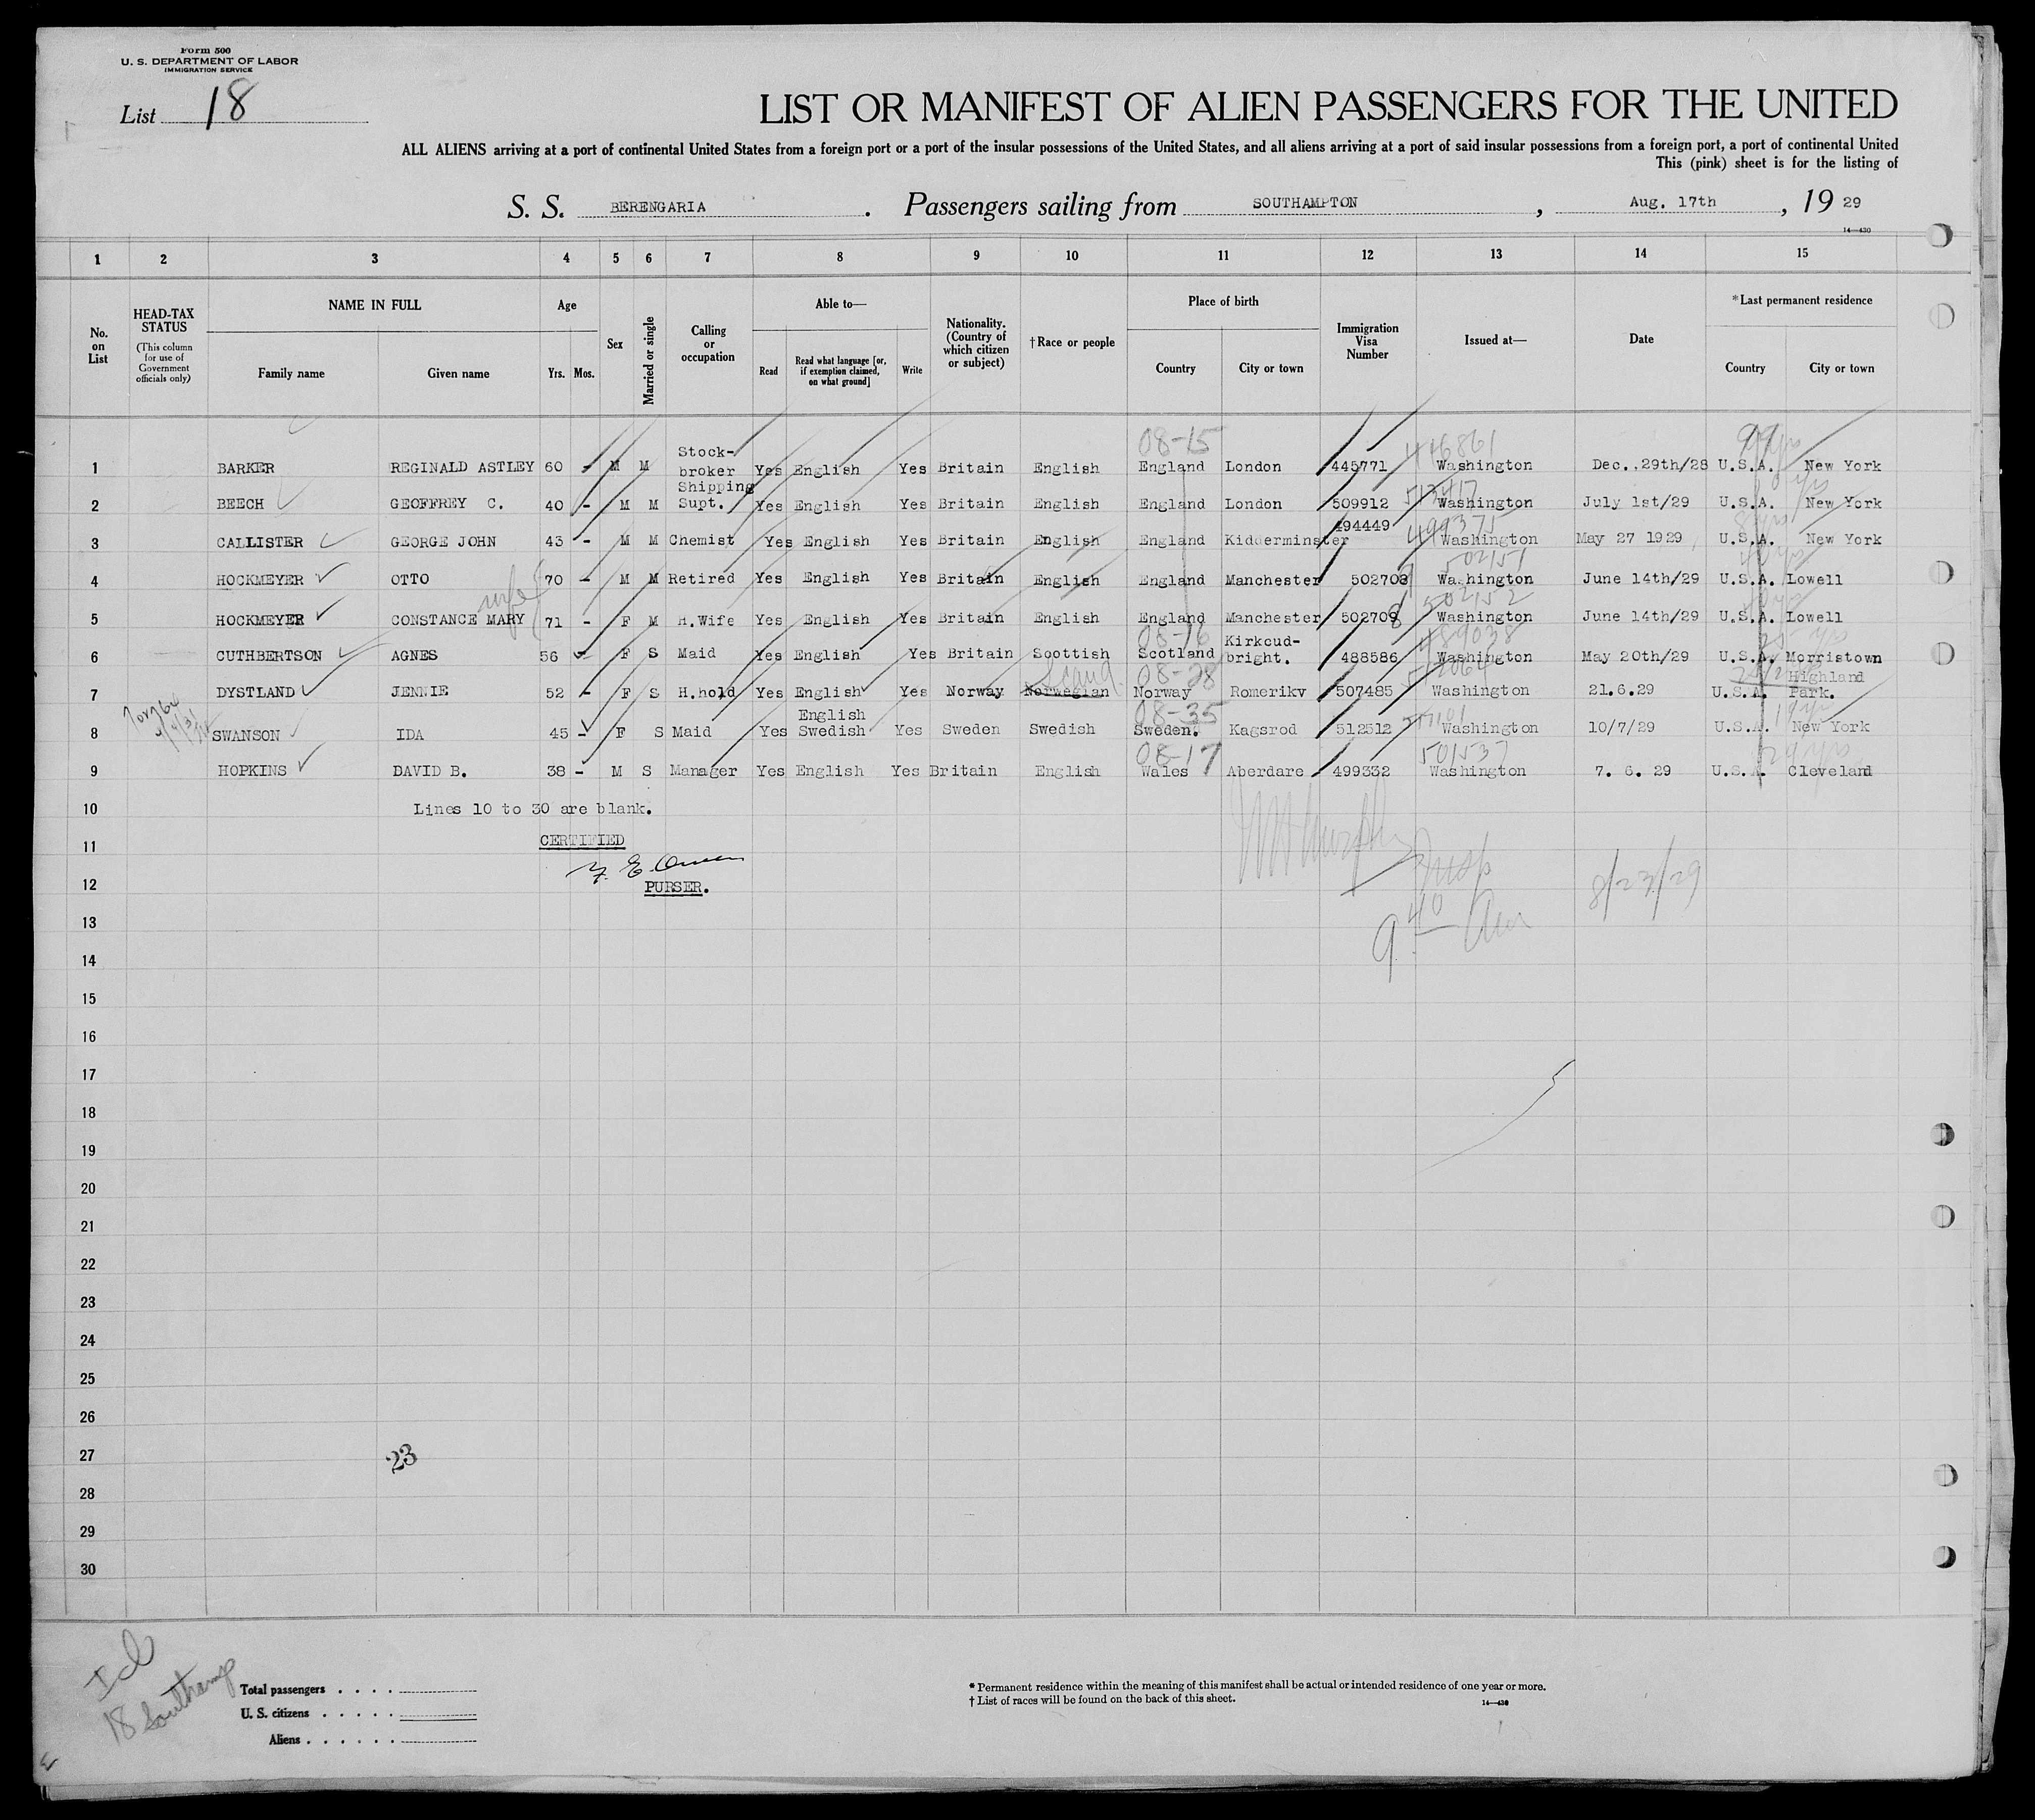 Form 500
U. S. DEPARTMENT OF LABOR
IMMIGRATION SERVICE
List 18
LIST OR MANIFEST OF ALIEN PASSENGERS FOR THE UNITED
ALL ALIENS arriving at a port of continental United States from a foreign port or a port of the insular possessions of the United States, and all aliens arriving at a port of said insular possessions from a foreign port, a port of continental United
This (pink) sheet is for the listing of
S. S. BERENGARIA. Passengers sailing from SOUTHAMPTON, Aug. 17th, 19 29
14—430
1 2 3 4 5 6 7 8 9 10 11 12 13 14 15
No. on List
HEAD-TAX STATUS
(This column for use of Government officials only)
NAME IN FULL
Family name Given name
Age
Yrs. Mos.
Sex
Married or single
Calling or occupation
Able to—
Read Read what language [or, if exemption claimed, on what ground] Write
Nationality. (Country of which citizen or subject)
†Race or people
Place of birth
Country City or town
Immigration Visa Number
Issued at—
Date
*Last permanent residence
Country City or town
08-15 446861
1 BARKER REGINALD ASTLEY 60 - M M Stock-broker Yes English Yes Britain English England London 445771 Washington Dec..29th/28 U.S.A. New York
2 BEECH GEOFFREY C. 40 - M M Shipping Supt. Yes English Yes Britain English England London 509912 Washington July 1st/29 U.S.A. New York
499375
3 CALLISTER GEORGE JOHN 43 - M M Chemist Yes English Yes Britain English England Kidderminster 494449 Washington May 27 1929 U.S.A. New York
502151
4 HOCKMEYER OTTO 70 - M M Retired Yes English Yes Britain English England Manchester Washington June 14th/29 U.S.A. Lowell
wife 502152
5 HOCKMEYER CONSTANCE MARY 71 - F M H.Wife Yes English Yes Britain English England Manchester 502708 Washington June 14th/29 U.S.A. Lowell
08-16 489038
6 CUTHBERTSON AGNES 56 - F S Maid Yes English Yes Britain Scottish Scotland Kirkcud-bright. 488586 Washington May 20th/29 U.S.A. Morristown
Scand. 08-28
7 DYSTLAND JENNIE 52 - F S H.hold Yes English Yes Norway Norwegian Norway Romerikv 507485 Washington 21.6.29 U.S.A. Highland Park.
08-35
8 SWANSON IDA 45 - F S Maid Yes English Swedish Yes Sweden Swedish Sweden. Kagsrod 512512 Washington 10/7/29 U.S.A. New York
08-17 501537
9 HOPKINS DAVID B. 38 - M S Manager Yes English Yes Britain English Wales Aberdare 499332 Washington 7. 6. 29 U.S.A. Cleveland
10 Lines 10 to 30 are blank.
11 CERTIFIED
12 PURSER.
Murphy Insp
8/23/29
9 40 Am
13
14
15
16
17
18
19
20
21
22
23
24
25
26
27 23
28
29
30
18 Southamp
Total passengers . . . .
U. S. citizens . . . . .
Aliens . . . . . .
* Permanent residence within the meaning of this manifest shall be actual or intended residence of one year or more.
† List of races will be found on the back of this sheet.
14—430